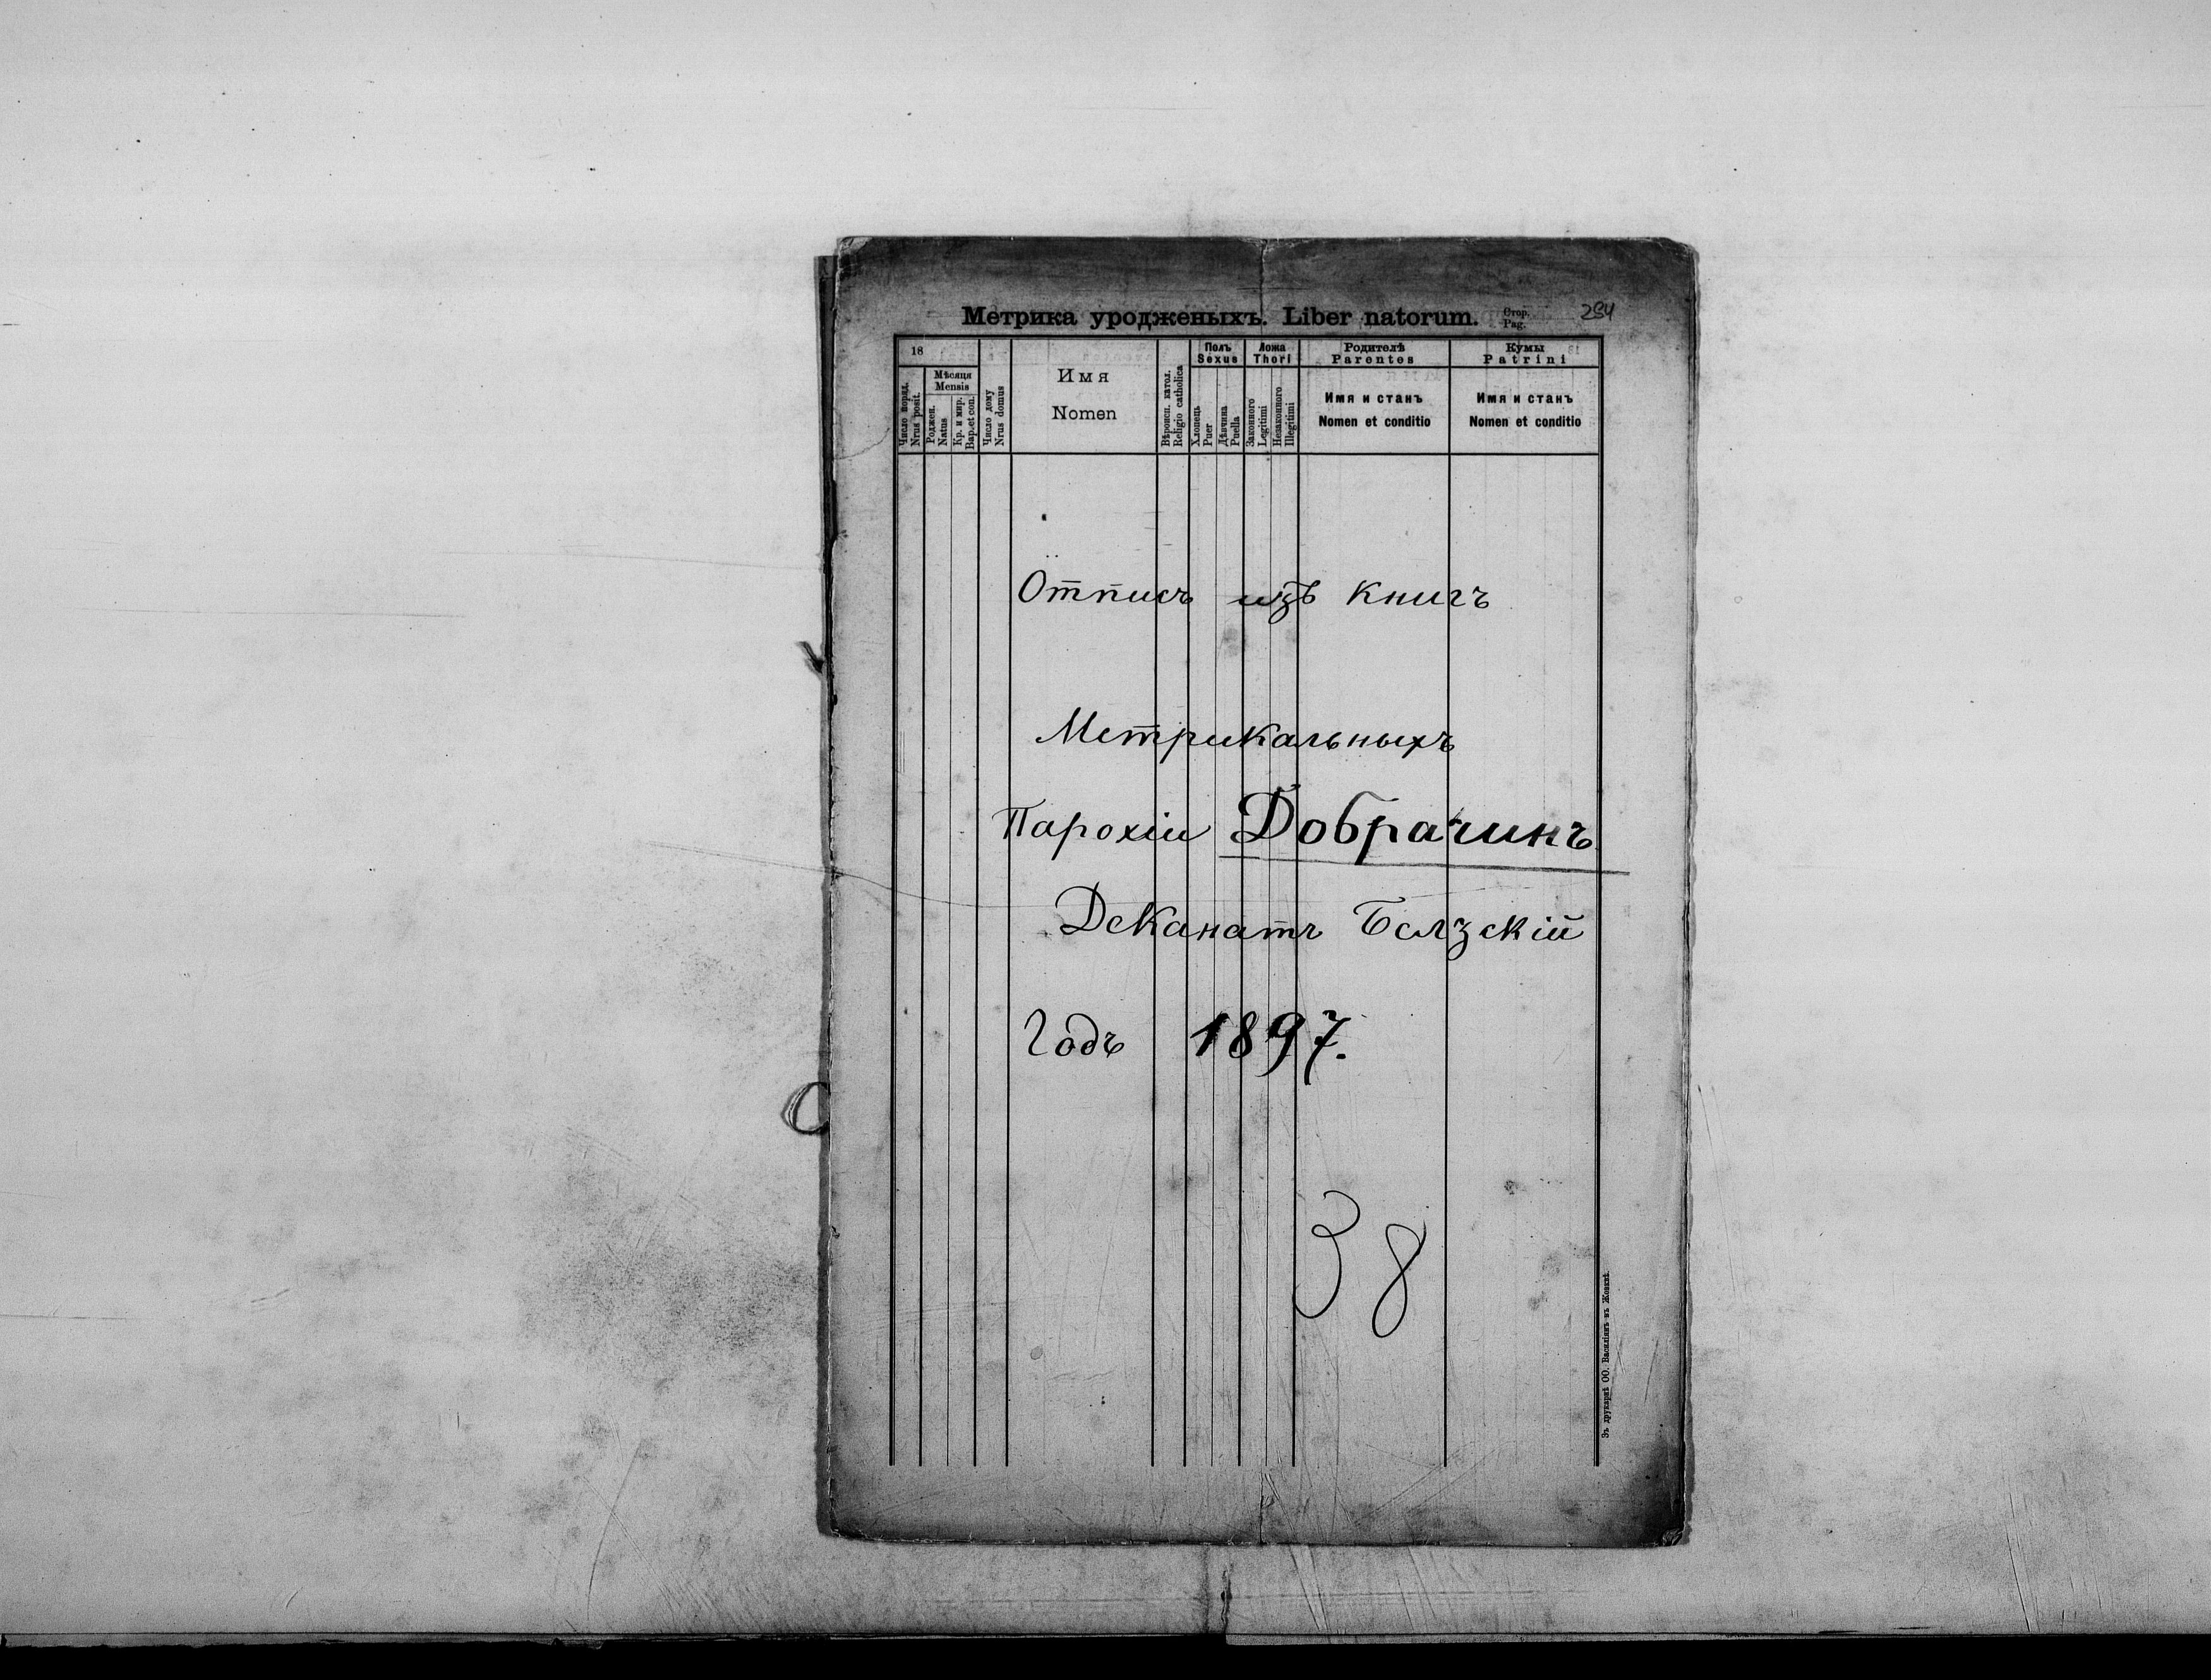 Метрика уродженыхъ. Liber natorum. Стор. Pag. 254
18
Число поряд. Nrus posit.
Мѣсяця Mensis
Роджен. Natus
Кр. и мир. Bap. et con.
Число дому Nrus domus
Имя
Nomen
Вѣроисп. катол. Religio catholica
Полъ
Sexus
Хлопець Puer
Дѣвчина Puella
Ложа
Thori
Законного Legitimi
Незаконного Illegitimi
Родителѣ
Parentes
Имя и станъ
Nomen et conditio
Кумы
Patrini
Имя и станъ
Nomen et conditio
Отпись изъ книгъ
Метрикальныхъ
Парохіи Добрачинъ
Деканатъ Белзскій
Годъ 1897.
38
Зъ друкарнѣ ОО. Василіянъ въ Жовквѣ.